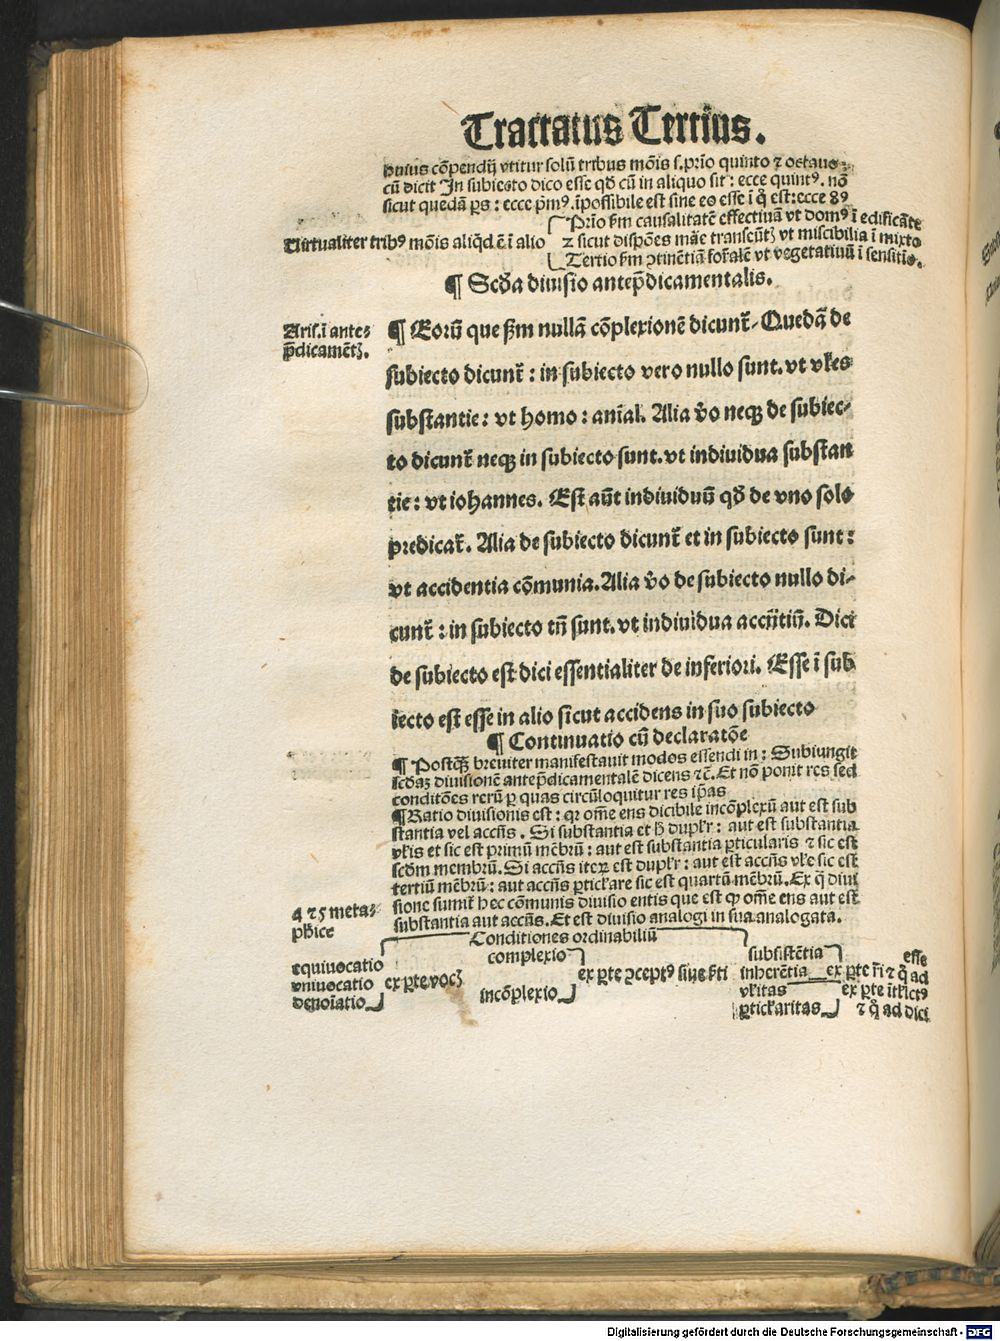 Tractatus Tertius.
huius cōpendij vtitur solū tribus mōis s. prīo quinto ⁊ octauo:
cū dicit In subiecto dico esse qđ cū in aliquo sit: ecce quintꝰ. nō
sicut quedā ps: ecce pmꝰ. īpossibile est sine eo esse ī q̊ est: ecce 8ꝰ
Prīo ẜm causalitatē effectiuā vt domꝰ ī edificāte
Uirtualiter tribꝰ mōis aliqd ē ī alio
⁊ sicut dispōes māe transcūtꝫ vt miscibilia ī mixto
Tertio ẜm ↄtinētiā forālē vt vegetatiuū ī sensitīo.
¶ Scđa diuisio antep̄dicamentalis.
Aris. ī ante-
p̄dicamētꝫ.
¶ Eorū que ẜm nullā cōplexionē dicunt̄. Quedā de
subiecto dicunt̄: in subiecto vero nullo sunt. vt vl̄es
substantie: vt homo: anīal. Alia v̄o neqꝫ de subiec-
to dicunt̄ neqꝫ in subiecto sunt. vt indiuidua substan
tie: vt iohannes. Est aūt indiuiduū qđ de vno solo
predicat̄. Alia de subiecto dicunt̄ et in subiecto sunt:
vt accidentia cōmunia. Alia v̄o de subiecto nullo di-
cunt̄: in subiecto tn̄ sunt. vt indiuidua accn̄tiū. Dici
de subiecto est dici essentialiter de inferiori. Esse ī sub
iecto est esse in alio sicut accidens in suo subiecto
¶ Continuatio cū declaratōe
¶ Postq̄ꝫ breuiter manifestauit modos essendi in: Subiungit
scđaꝫ diuisionē antep̄dicamentalē dicens ⁊c̄. Et nō ponit res sed
conditōes rerū p quas circūloquitur res ip̄as
¶ Ratio diuisionis est: qꝛ om̄e ens dicibile incōplexū aut est sub
stantia vel accn̄s. Si substantia et h̄ dupl̄r: aut est substantia
vl̄is et sic est primū mēbrū: aut est substantia ꝑticularis ⁊ sic est
scđm membrū. Si accn̄s iteꝝ est dupl̄r: aut est accn̄s vl̄e sic est
tertiū mēbrū: aut accn̄s ꝑticl̄are sic est quartū mēbrū. Ex q̄ diui
sione sumit̄ hec cōmunis diuisio entis que est ꝙ om̄e ens aut est
4 ⁊ 5 meta-
ph̄ice
substantia aut accn̄s. Et est diuisio analogi in sua analogata.
Conditiones ordinabiliū
equiuocatio
vniuocatio
denoīatio
ex ꝑte vocꝫ
complexio
incōplexio
ex ꝑte ↄceptꝰ siue
subsistētia
inherētia
vl̄itas
ꝑticl̄aritas
esse
ex ꝑte r̄i ⁊ q̊ ad
ex ꝑte
⁊ q̊ ad dici
Digitalisierung gefördert durch die Deutsche Forschungsgemeinschaft - DFG